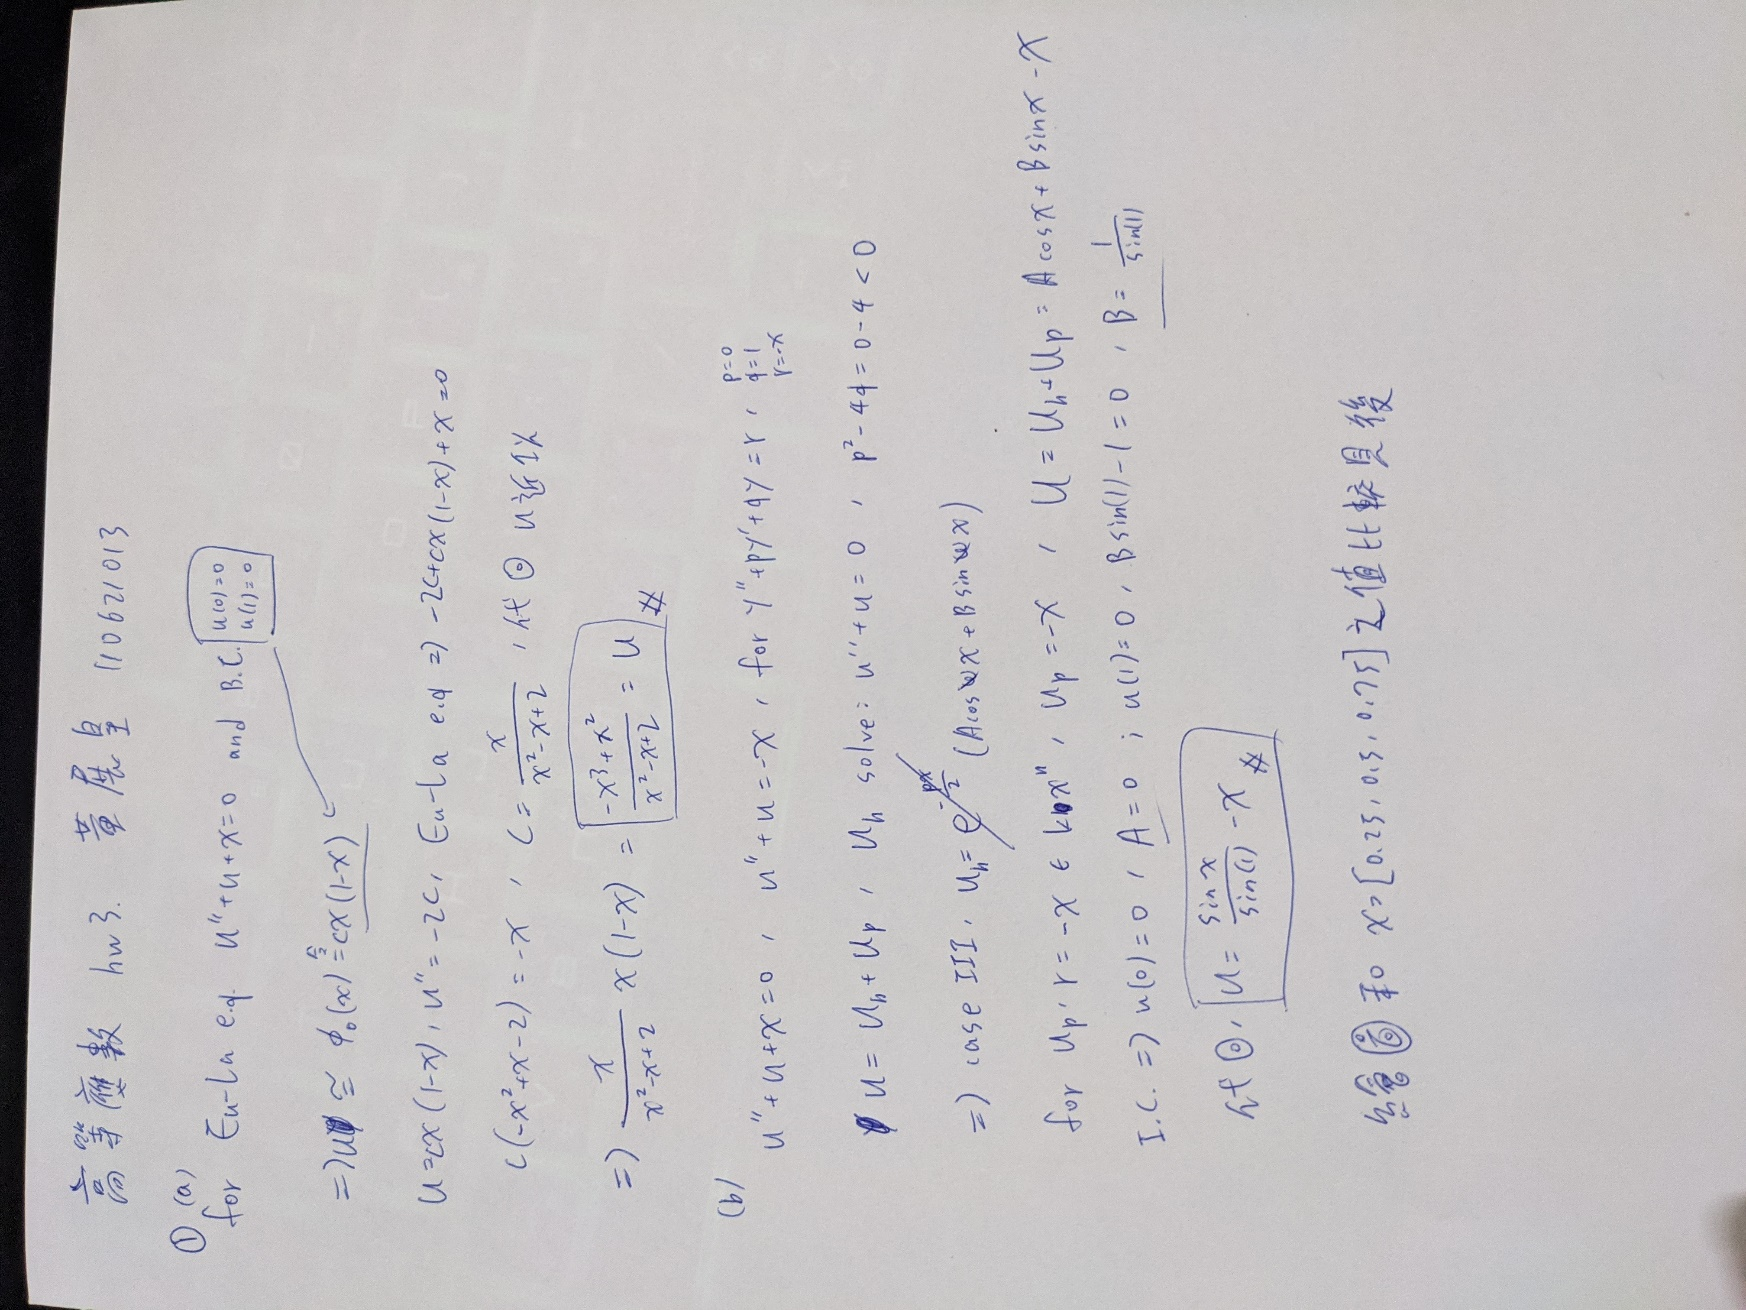 高等應數 hw3. 黃展皇 110621013
① (a)
for Eu-La eq. u''+u+x=0 and B.C. u(0)=0
u(1)=0
=) u ≅ φ₀(x) = cx(1-x)
u=cx(1-x), u''=-2c, Eu-La eq =) -2c+cx(1-x)+x=0
c(-x²+x-2)=-x, c= x/(x²-x+2), 代回 u
=) x/(x²-x+2) x(1-x) = (-x³+x²)/(x²-x+2) = u #
(b)
u''+u+x=0, u''+u=-x, for y''+py'+qy=r, p=0
q=1
r=-x
u=u_h+u_p, u_h solve: u''+u=0, p²-4q=0-4<0
=) case III, u_h= (Acosωx+Bsinωx)
for u_p, r=-x ∈ kxⁿ, u_p=-x, u=u_h+u_p=Acosx+Bsinx-x
I.C. =) u(0)=0, A=0 ; u(1)=0, Bsin(1)-1=0, B= 1/sin(1)
代回, u= sinx/sin(1) -x #
繪圖和 x=[0.25,0.5,0.75]之值比較見後